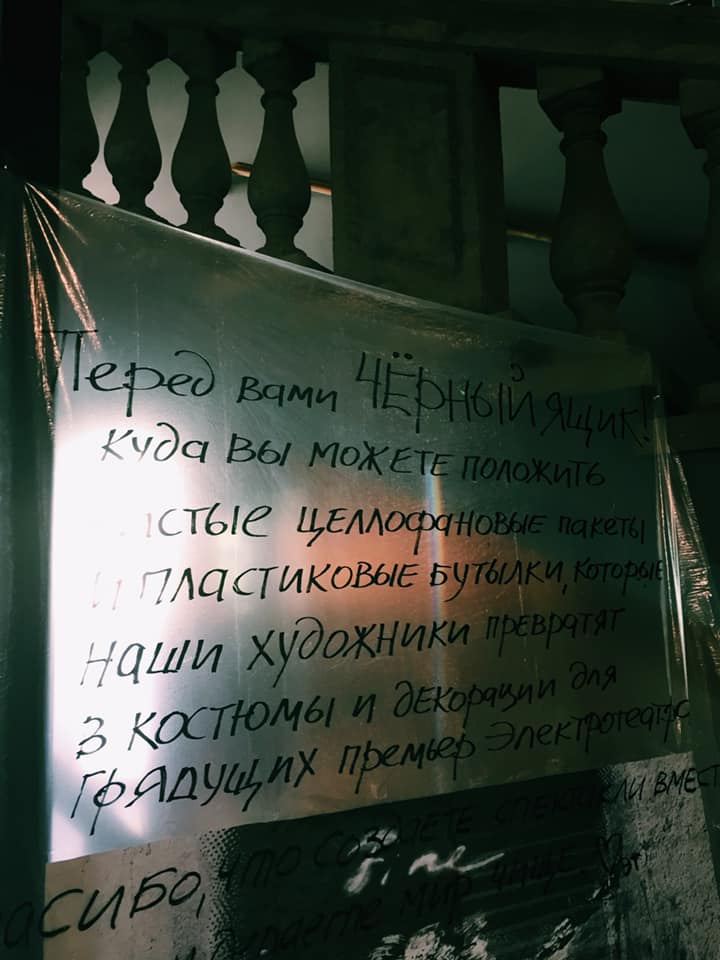 Перед вами ЧЁРНЫЙ ящик!
куда вы можете положить
истые целлофановые пакеты
и пластиковые бутылки, которые
наши художники превратят
в костюмы и декорации для
грядущих премьер Электротеатра
асибо, что создаете спектакли вмест
мир чище.